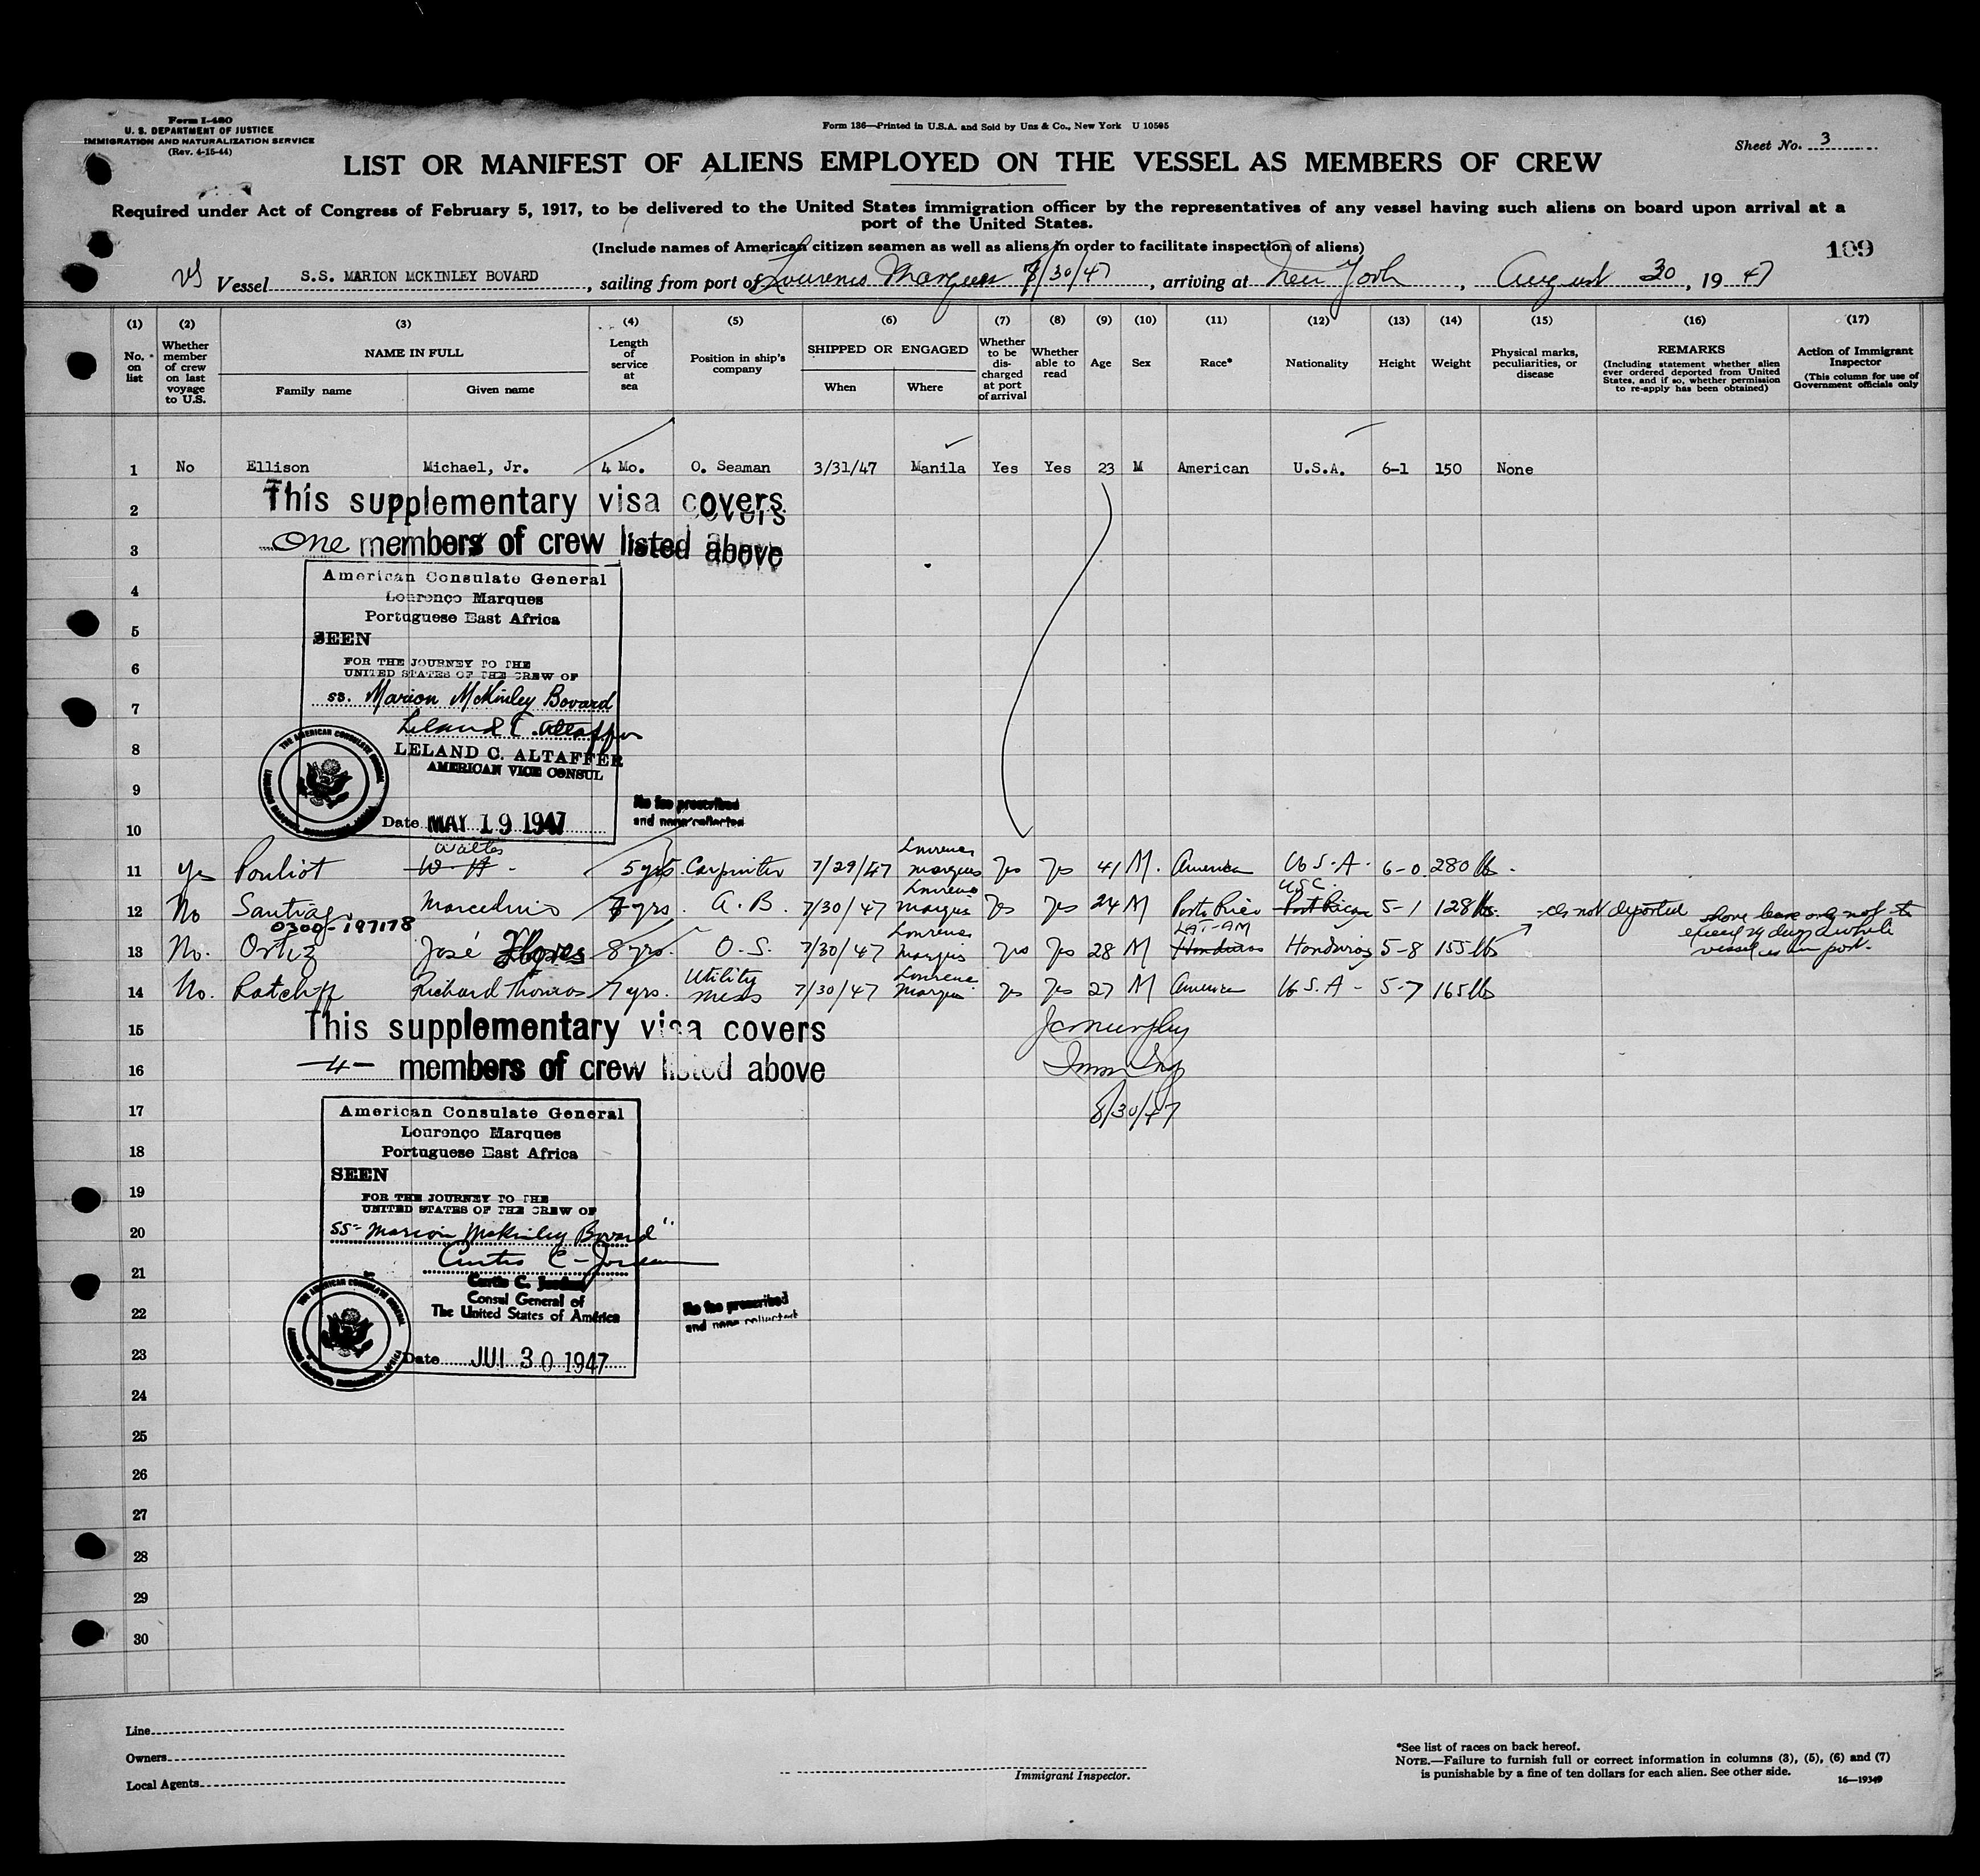 Form I-480
U. S. DEPARTMENT OF JUSTICE
IMMIGRATION AND NATURALIZATION SERVICE
(Rev. 4-15-44)
Form 136—Printed in U.S.A. and Sold by Unz & Co., New York U 10595
Sheet No. 3
LIST OR MANIFEST OF ALIENS EMPLOYED ON THE VESSEL AS MEMBERS OF CREW
Required under Act of Congress of February 5, 1917, to be delivered to the United States immigration officer by the representatives of any vessel having such aliens on board upon arrival at a
port of the United States.
(Include names of American citizen seamen as well as aliens in order to facilitate inspection of aliens)
109
Vessel S.S. MARION MCKINLEY BOVARD, sailing from port of Lourenco Marques 7/30/47, arriving at New York, August 30, 1947
(1) (2) (3) (4) (5) (6) (7) (8) (9) (10) (11) (12) (13) (14) (15) (16) (17)
No. on list
Whether member of crew on last voyage to U.S.
NAME IN FULL
Family name Given name
Length of service at sea
Position in ship's company
SHIPPED OR ENGAGED
When Where
Whether to be discharged at port of arrival
Whether able to read
Age
Sex
Race*
Nationality
Height
Weight
Physical marks, peculiarities, or disease
REMARKS
(Including statement whether alien ever ordered deported from United States, and if so, whether permission to re-apply has been obtained)
Action of Immigrant Inspector
(This column for use of Government officials only
1 No Ellison Michael, Jr. 4 Mo. O. Seaman 3/31/47 Manila Yes Yes 23 M American U.S.A. 6-1 150 None
2 This supplementary visa covers
3 One members of crew listed above
American Consulate General
4 Lourenço Marques
Portuguese East Africa
5 SEEN
6 FOR THE JOURNEY TO THE
UNITED STATES OF THE CREW OF
7 ss. Marion McKinley Bovard
Leland C. Altaffer
8 LELAND C. ALTAFFER
AMERICAN VICE CONSUL
THE AMERICAN CONSULATE GENERAL
9 No fee prescribed
and none collected
10 Date MAY 19 1947
Walter
11 Yes Pouliot W. H. 5 yrs. Carpenter 7/29/47 Lourenco Marques Yes Yes 41 M. America U.S.A. 6-0 280 lbs.
U.S.C.
12 No Santiago Marcelino 7 yrs. A.B. 7/30/47 Lourenco Marques Yes Yes 24 M Porto Rico Port Rican 5-1 128 lbs. not deported shore leave only not to
0300-197178
exceed 29 days while
vessel is in port.
LAT-AM
13 No. Ortiz José Flores 8 yrs. O.S. 7/30/47 Lourenco Marques Yes Yes 28 M Honduras Honduras 5-8 155 lbs
14 No. Ratcliff Richard Thomas 7 yrs. Utility Mess 7/30/47 Lourenco Marques Yes Yes 27 M America U.S.A. 5-7 165 lbs
15 This supplementary visa covers
16 -4- members of crew listed above
Imm Insp
17 8/30/47
American Consulate General
Lourenço Marques
18 Portuguese East Africa
SEEN
19 FOR THE JOURNEY TO THE
UNITED STATES OF THE CREW OF
20 SS "Marion McKinley Bovard"
Curtis C. Jordan
21 Curtis C. Jordan
Consul General of
22 The United States of América
THE AMERICAN CONSULATE GENERAL
No fee prescribed
and none collected
23 Date JUL 30 1947
24
25
26
27
28
29
30
Line
Owners
Local Agents
Immigrant Inspector.
*See list of races on back hereof.
NOTE.—Failure to furnish full or correct information in columns (3), (5), (6) and (7)
is punishable by a fine of ten dollars for each alien. See other side.
16—19349